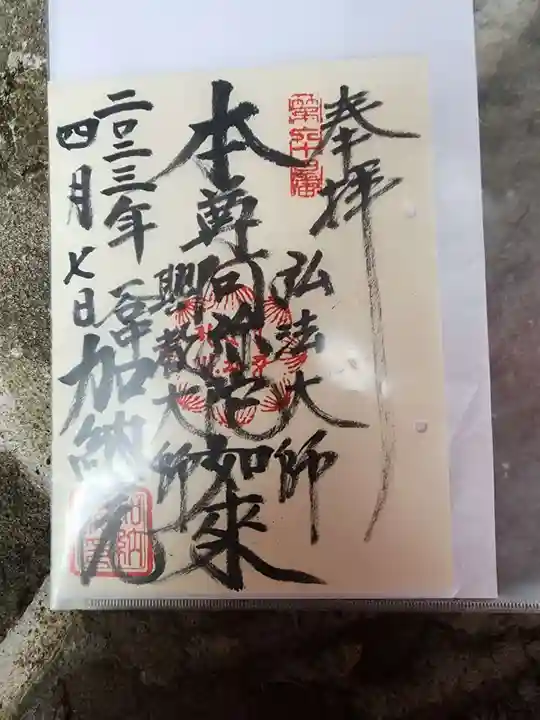 奉拝
弘法大師
本尊阿弥陀如来
興教大師
加納元
二〇二三年
四月七日